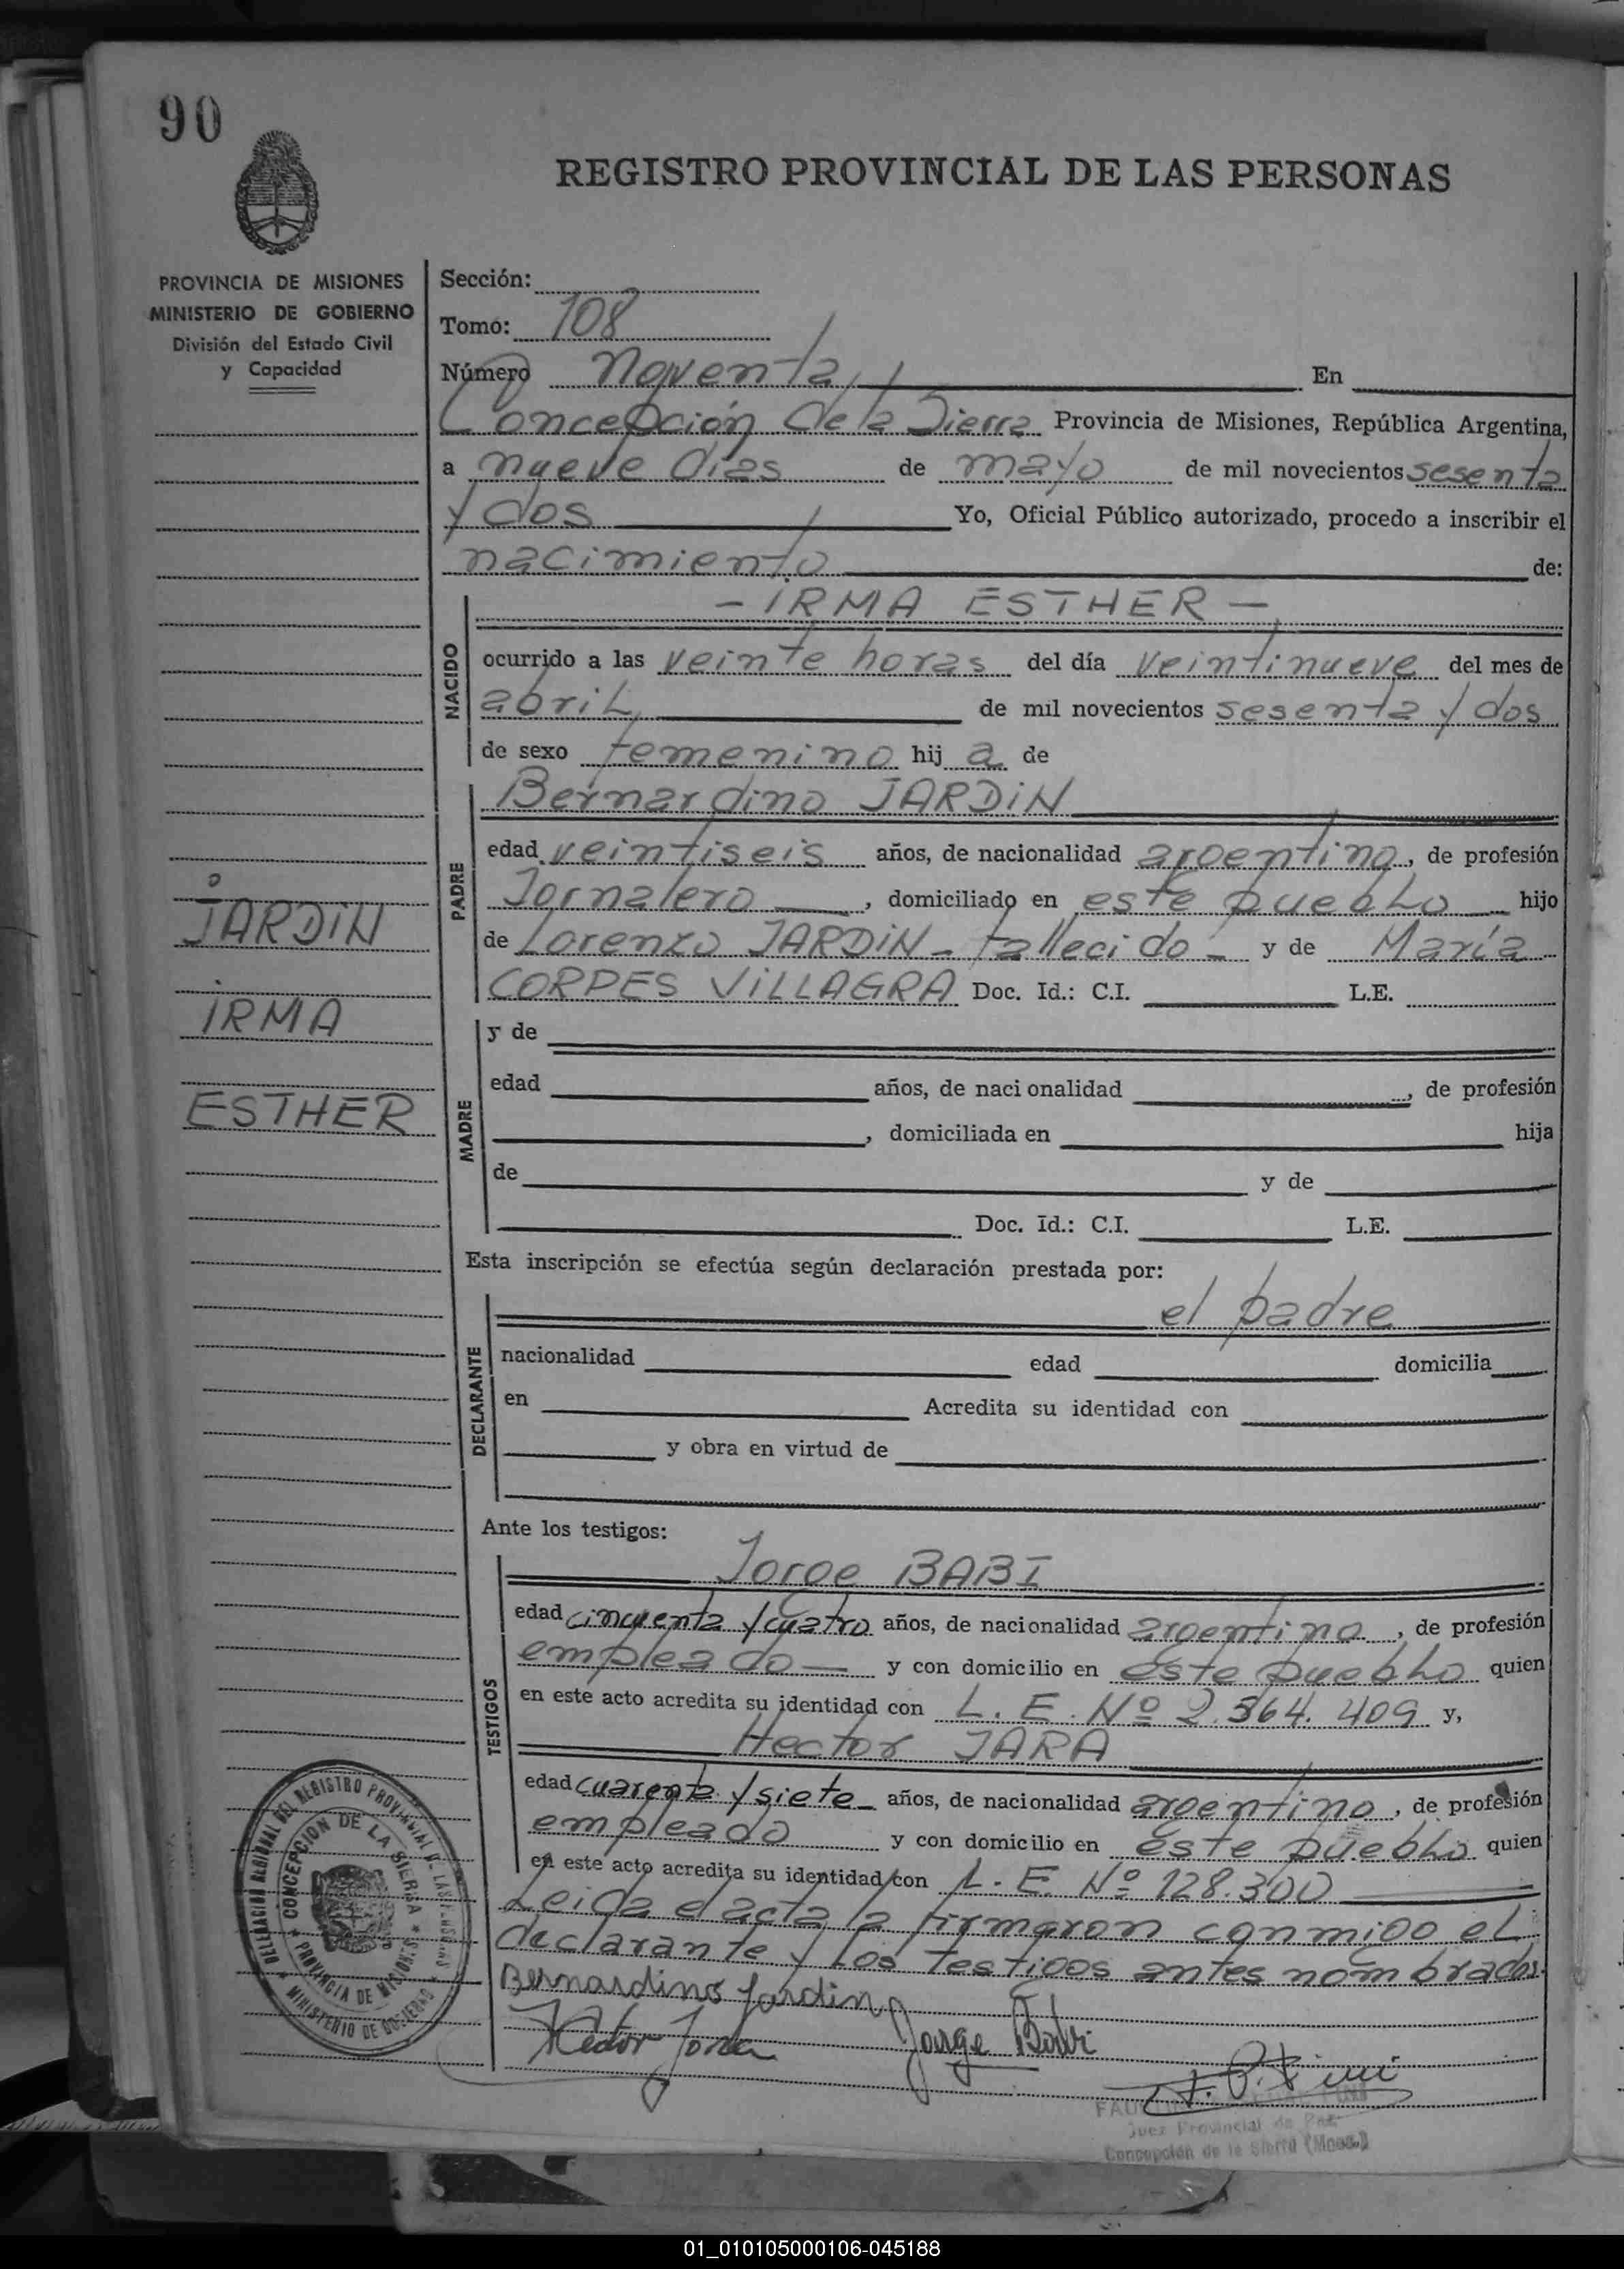 90
REGISTRO PROVINCIAL DE LAS PERSONAS
PROVINCIA DE MISIONES
MINISTERIO DE GOBIERNO
División del Estado Civil
y Capacidad
Sección:
Tomo: 108
Número noventa En
Concepción de la Sierra Provincia de Misiones, República Argentina,
a nueve días de mayo de mil novecientos sesenta
y dos Yo, Oficial Público autorizado, procedo a inscribir el
nacimiento de:
- IRMA ESTHER -
NACIDO
ocurrido a las veinte horas del día veintinueve del mes de
abril de mil novecientos sesenta y dos
de sexo femenino hij a de
Bernardino JARDiN
PADRE
edad veintiseis años, de nacionalidad argentino, de profesión
Jornalero, domiciliado en este pueblo hijo
de Lorenzo JARDiN - fallecido - y de María
CORPES ViLLAGRA Doc. Id.: C.I. L.E.
JARDiN
iRMA
ESTHER
MADRE
y de
edad años, de naci onalidad , de profesión
, domiciliada en hija
de y de
Doc. Id.: C.I. L.E.
Esta inscripción se efectúa según declaración prestada por:
el padre
DECLARANTE
nacionalidad edad domicilia
en Acredita su identidad con
y obra en virtud de
Ante los testigos:
Jorge BABI
TESTIGOS
edad cincuenta y cuatro años, de nacionalidad argentino, de profesión
empleado — y con domicilio en este pueblo quien
en este acto acredita su identidad con L. E. Nº 2.364.409 y,
Hector JARA
edad cuarenta y siete - años, de nacionalidad argentino, de profesión
empleado y con domicilio en este pueblo quien
en este acto acredita su identidad con L. E. Nº 128.300
Leida el acta la firmaron conmigo el
declarante y los testigos antes nombrados.
Bernardino Jardin
Hector Jara Jorge Babi
DELEGACION REGIONAL DEL REGISTRO PROVINCIAL DE LAS PERSONAS
CONCEPCION DE LA SIERRA
PROVINCIA DE MISIONES
MINISTERIO DE GOBIERNO
Juez Provincial de Paz
Concepción de la Sierra (Mnes.)
01_010105000106-045188